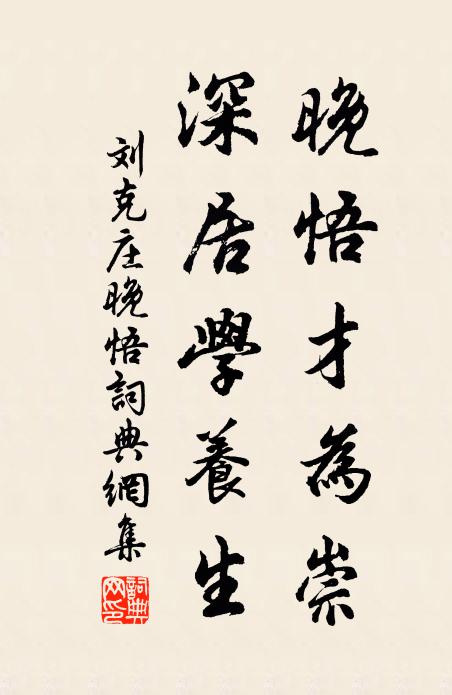 晚悟才為祟
深居學養生
刘克庄晚悟詞典網集
詞典网印